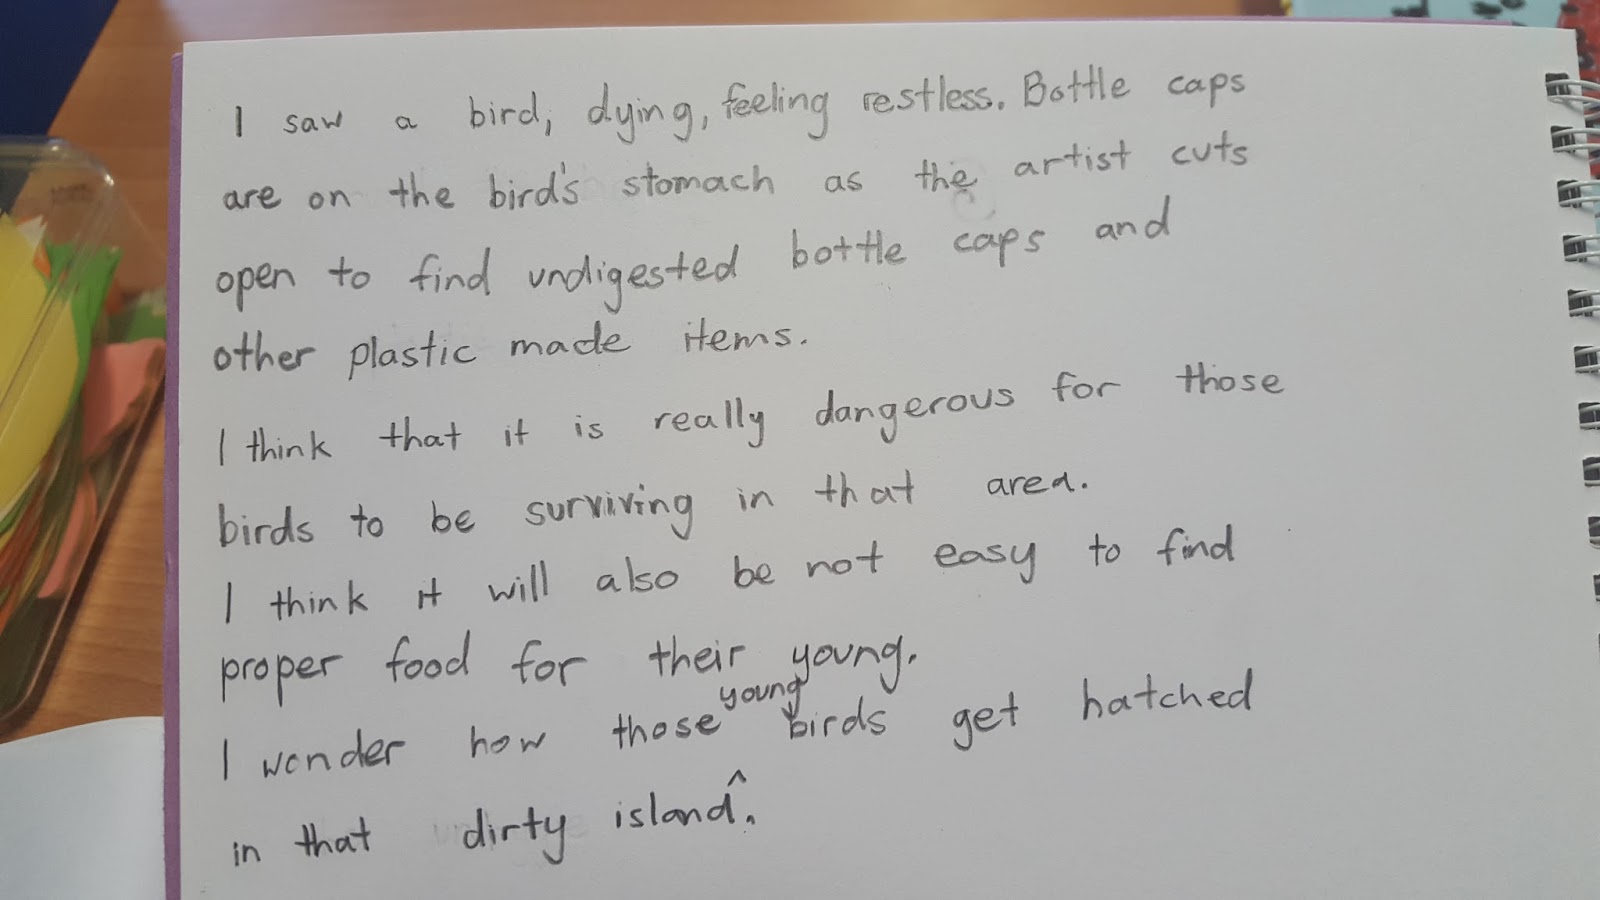 I saw a bird, dying, feeling restless. Bottle caps
are on the bird's stomach as the artist cuts
open to find undigested bottle caps and
other plastic made items.
I think that it is really dangerous for those
birds to be surviving in that area.
I think it will also be not easy to find
proper food for their young.
I wonder how those young birds get hatched
in that dirty island^.